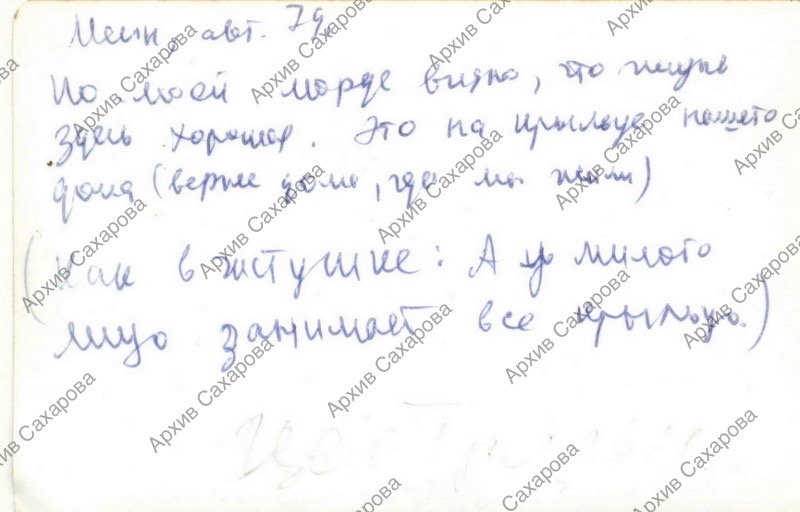 Мейн, авт. 79.
По моей морде видно, что жизнь
здесь хорошая. Это на крыльце нашего
дома (вернее дома, где мы жили)
(Как в частушке: А у милого
лицо занимает все крыльцо.)
Архив Сахарова